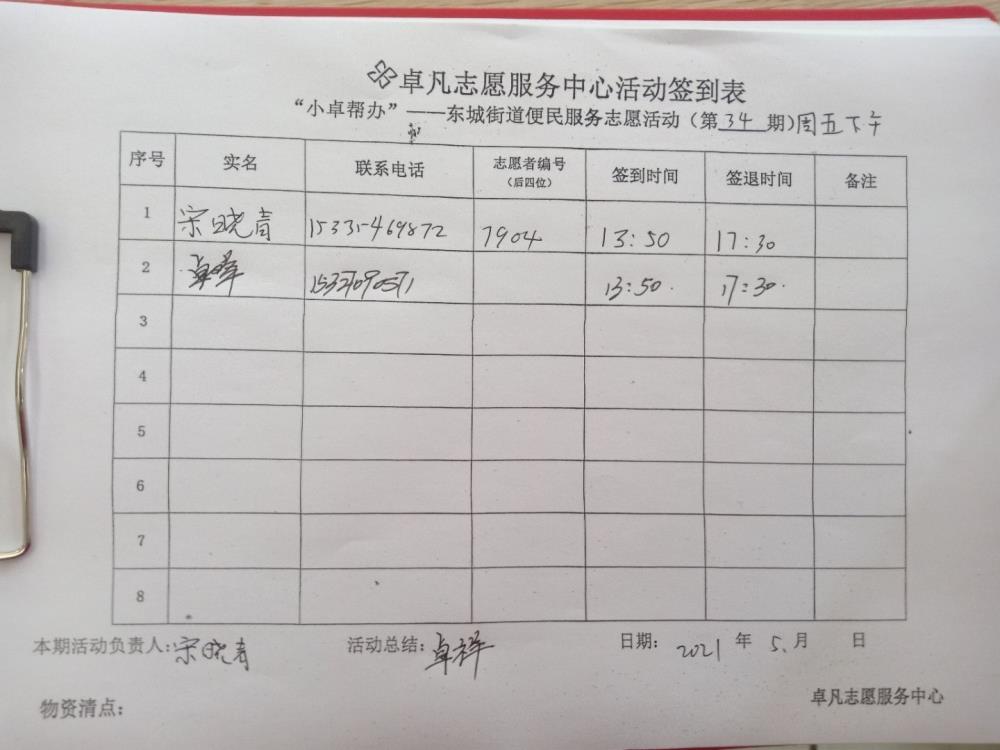 卓凡志愿服务中心活动签到表
“小卓帮办”——东城街道便民服务志愿活动（第34期）周五下午
序号 实名 联系电话 志愿者编号（后四位） 签到时间 签退时间 备注
1 宋晓青 15335469872 7904 13:50 17:30
2 13:50. 17:30.
3
4
5
6
7
8
本期活动负责人:宋晓青 活动总结:卓祥 日期: 2021 年 5. 月 日
物资清点: 卓凡志愿服务中心